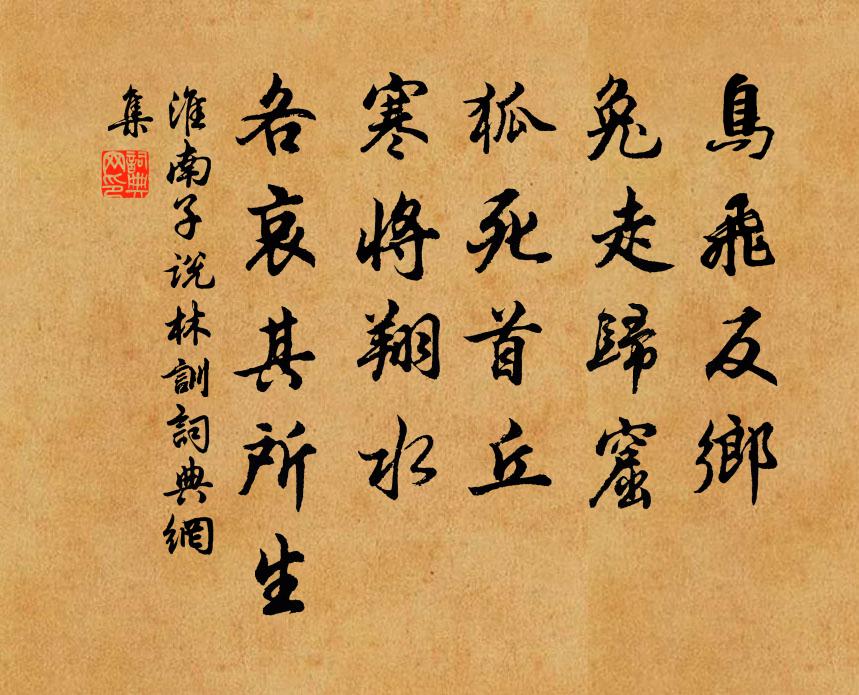 鳥飛反鄉
兔走歸窟
狐死首丘
寒將翔水
各哀其所生
淮南子說林訓詞典網
集
詞典
网印